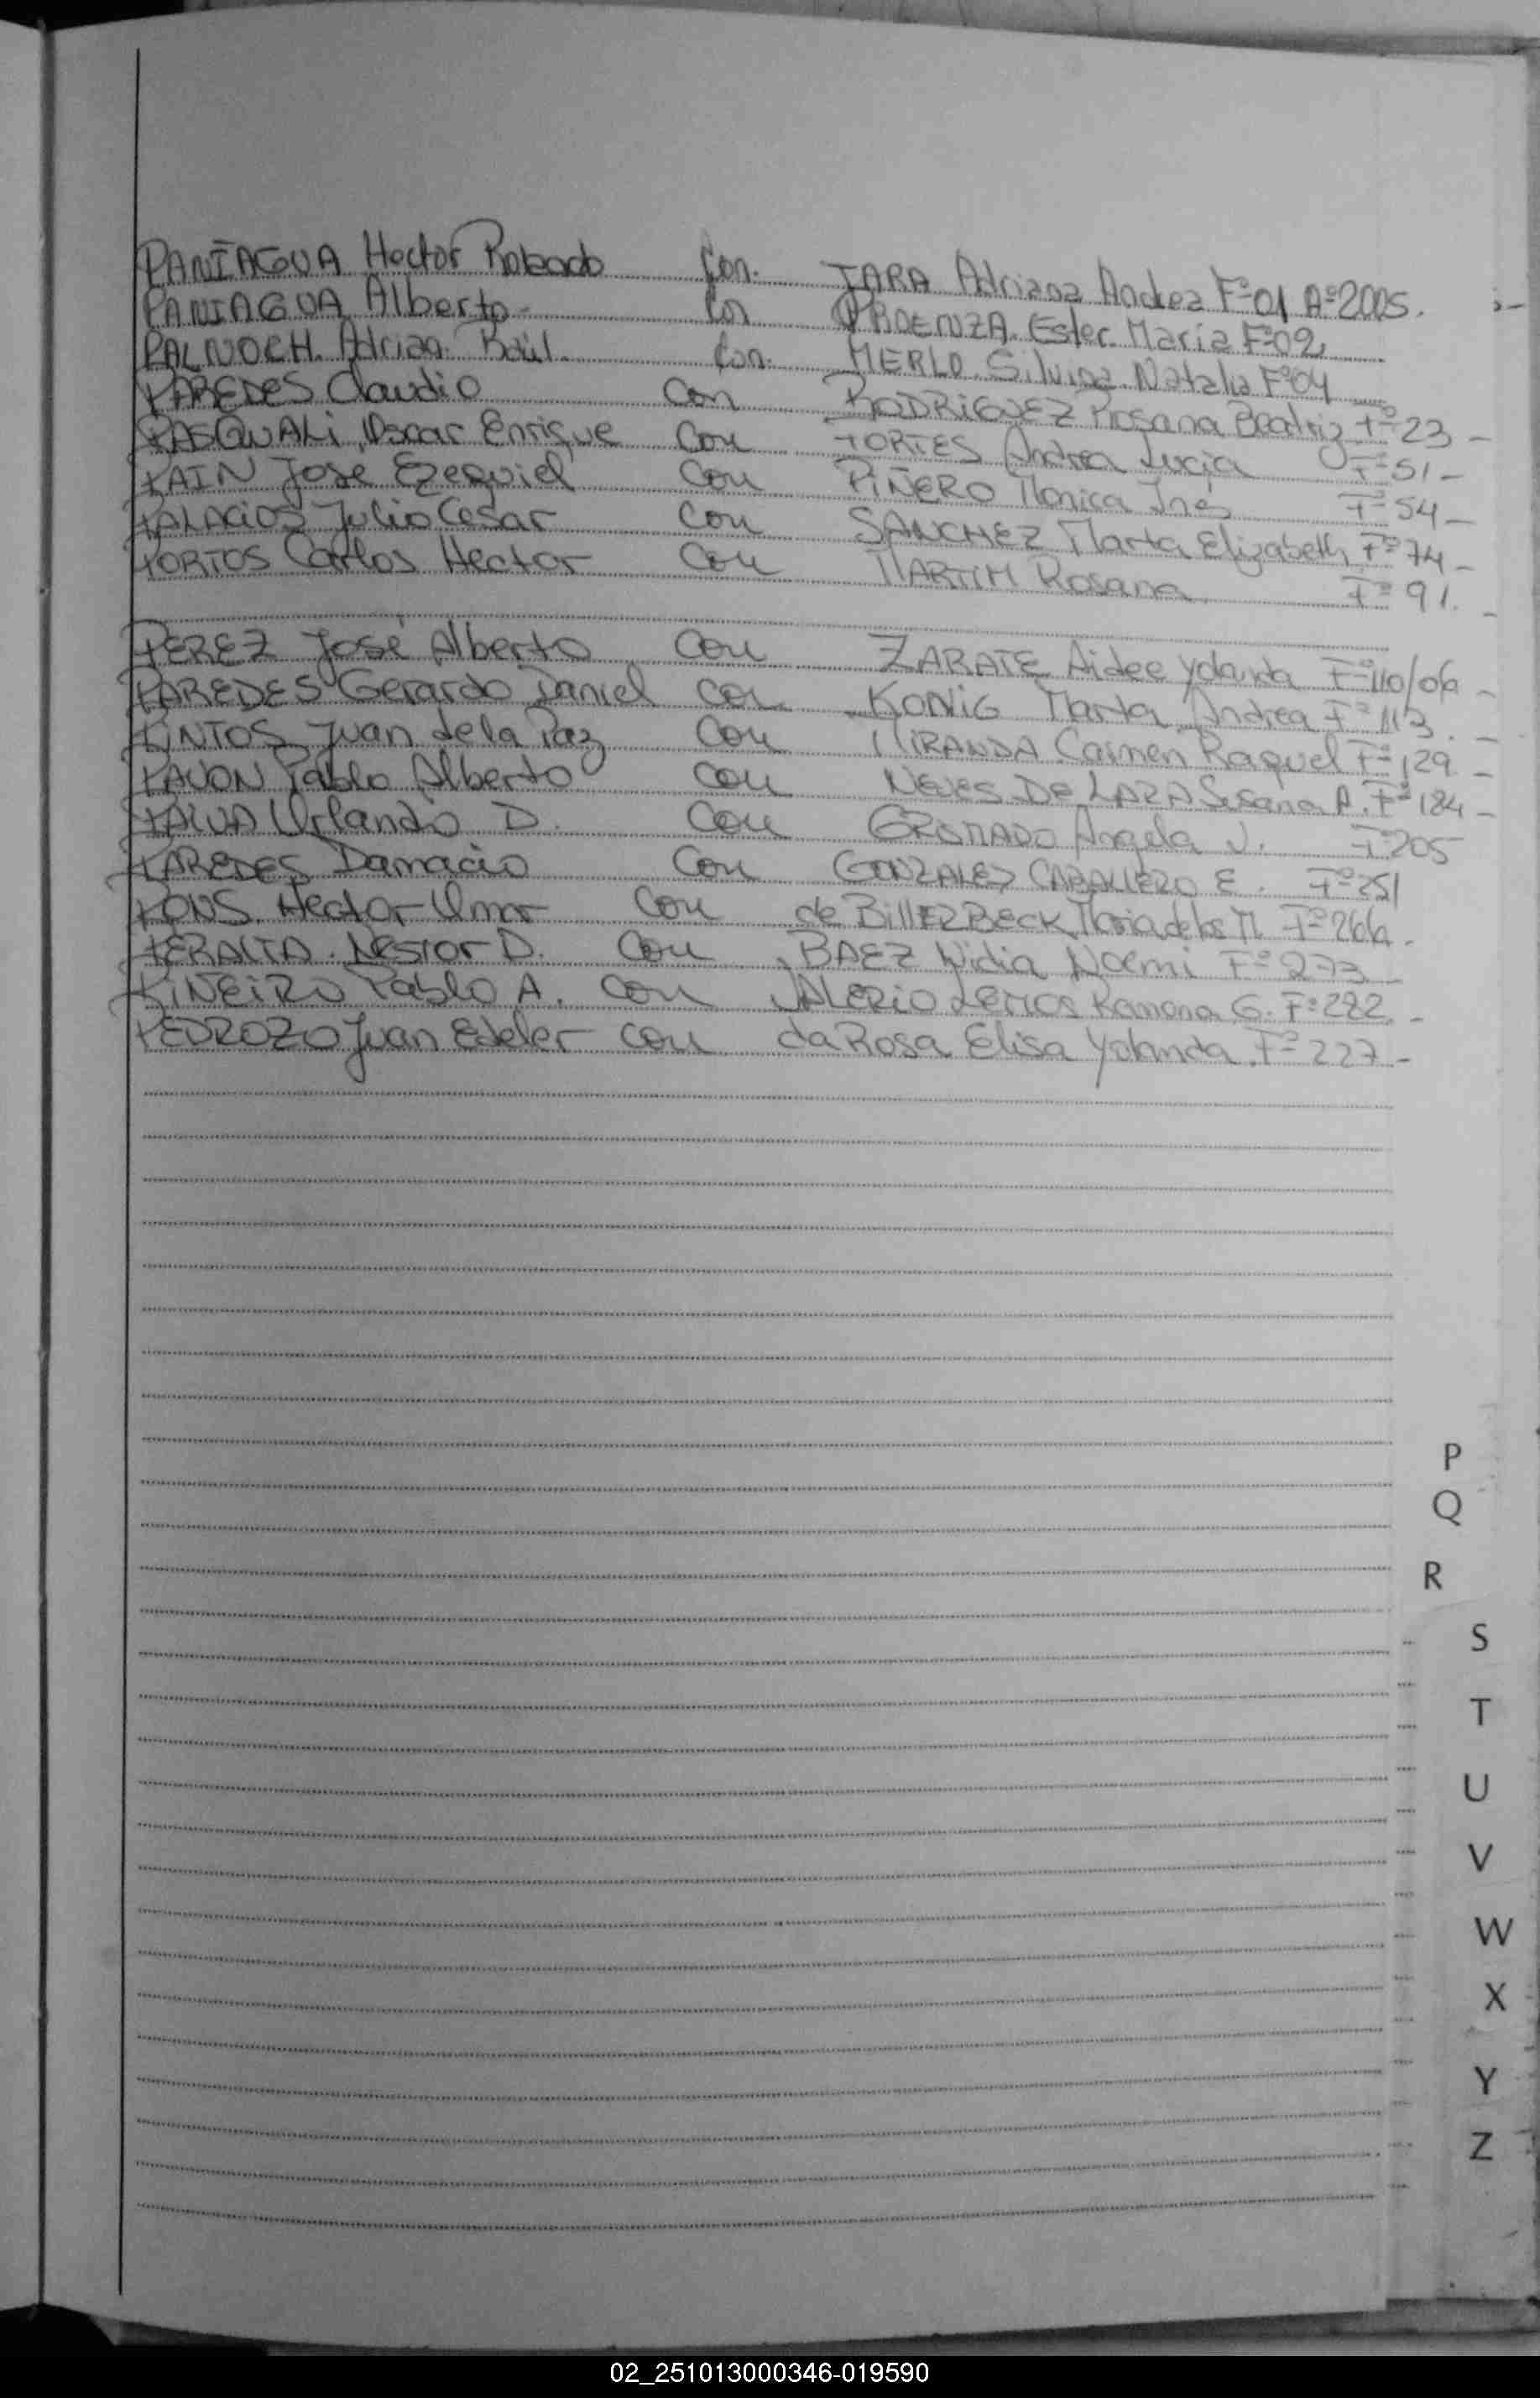 PANIAGUA Hector Rolando Con. JARA Adriana Andrea Fº01 Aº2005.
PANIAGUA Alberto con Ester Maria F:02
PALNOCH. Adrian Raúl. Con. MERLO Silvina Natalia Fº04
PAREDES Claudio con RODRIGUEZ Rosana Beatriz Fº 23 -
PASQUALI, Oscar Enrique con Andrea Lucia Fº 51 -
PAIN Jose Ezequiel con PIÑERO Monica Inés Fº 54 -
PALACIOS Julio Cesar con SANCHEZ Marta Elizabeth Fº 74 -
PORTOS Carlos Hector con Rosana Fº 91. -
PEREZ José Alberto con ZARATE Aidee Yolanda Fº 110/06 -
PAREDES Gerardo Daniel con KONIG Marta Andrea Fº 113. -
PINTOS Juan de la Paz con MIRANDA Carmen Raquel Fº 129 -
PAVON Pablo Alberto con NEVES DE LARA Susana A. Fº 184 -
PAIVA Orlando D. con Angela Fº 205
PAREDES Damacio con GONZALEZ CABALLERO E. Fº 251
PONS Hector Omar con de BILLERBECK Maria de los M Fº 266.
PERALTA Nestor D. con BAEZ Noemi Fº 273 -
PIÑEIRO Pablo A. con VALERIO LEMOS Ramona G. Fº 282 -
PEDROZO Juan Edeler con da Rosa Elisa Yolanda Fº 227 -
P
Q
R
S
T
U
V
W
X
Y
Z
02_251013000346-019590